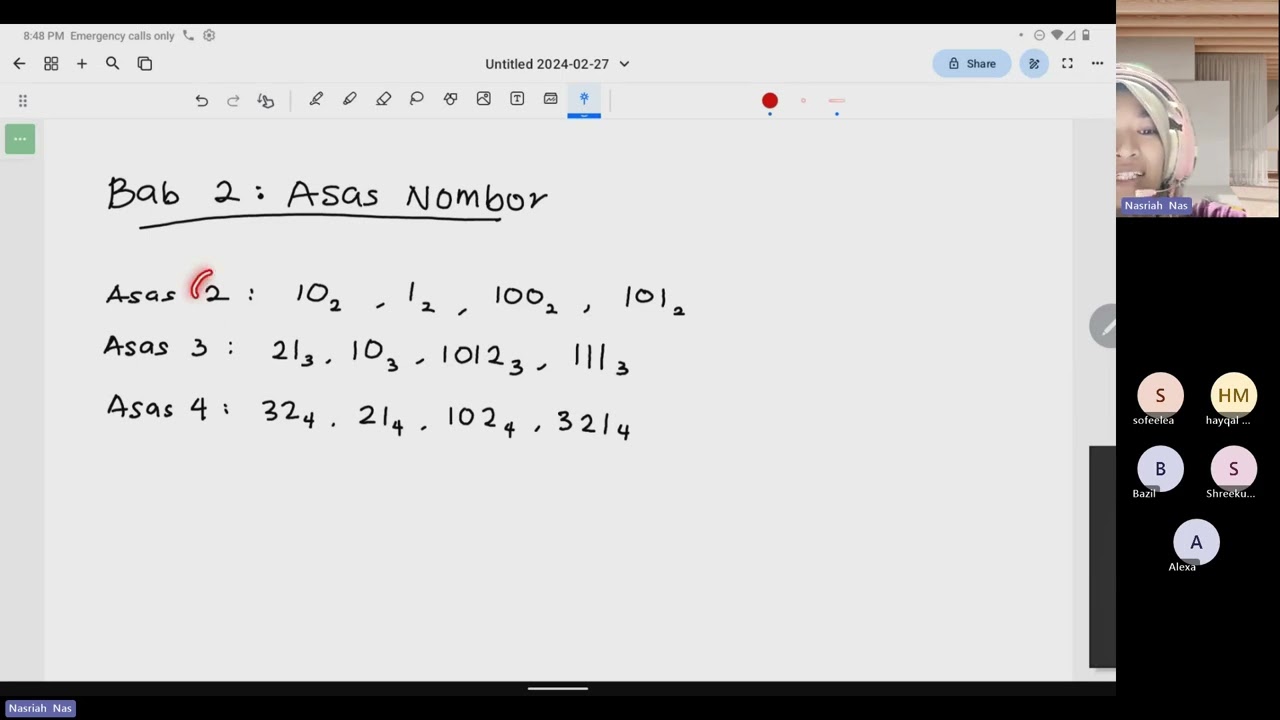 8:48 PM Emergency calls only
Untitled 2024-02-27
Share
Bab 2: Asas Nombor
Asas 2 : 10₂ , 1₂ , 100₂ , 101₂
Asas 3 : 21₃ , 10₃ , 1012₃ , 111₃
Asas 4 : 32₄ , 21₄ , 102₄ , 321₄
Nasriah Nas
S
sofeelea
HM
hayqal ...
B
Bazil
S
Shreeku...
A
Alexa
Nasriah Nas